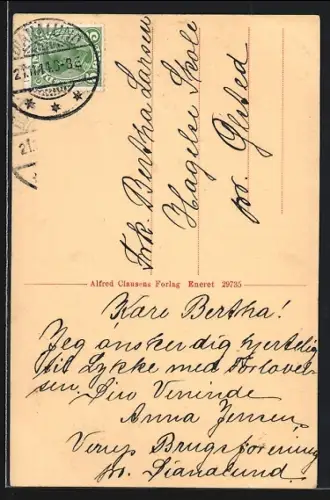 Frk. Bertha Larsen
Hagelse Skole
pr. Gjisted
Alfred Clausens Forlag Eneret 29735
Kære Bertha!
Jeg ønsker dig hjertelig
til Lykke med Forlovel-
sen Din Veninde
Anna Jensen
Verup Brugsforening
pr. Dianalund.